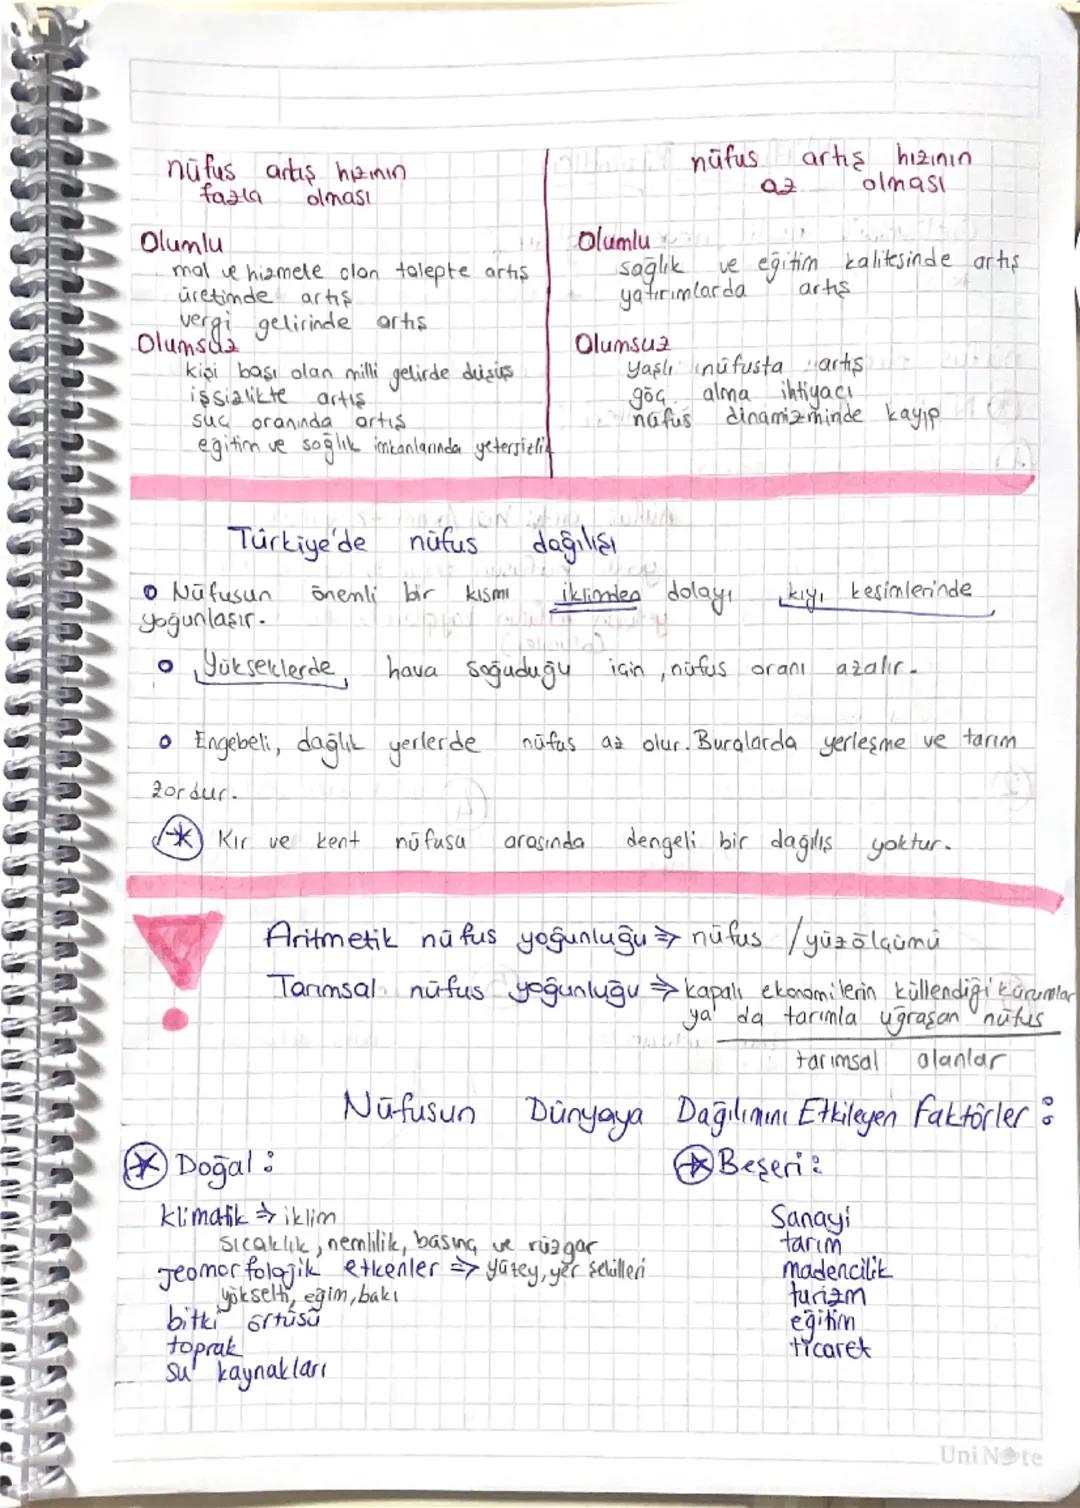 nüfus artış hızının
fazla olması
Olumlu
mal ve hizmete olan talepte artış
üretimde artış
vergi gelirinde artış
Olumsuz
kişi başı olan milli gelirde düşüş
işsizlikte artış
suç oranında artış
eğitim ve sağlık imkanlarında yetersizlik
nüfus artış hızının
az olması
Olumlu
sağlık ve eğitim kalitesinde artış
yatırımlarda artış
Olumsuz
yaşlı nüfusta artış
göç alma ihtiyacı
nüfus dinamizminde kayıp
Türkiye'de nüfus dağılışı
Nüfusun önemli bir kısmı iklimden dolayı kıyı kesimlerinde
yoğunlaşır.
Yükseklerde hava soğuduğu için, nüfus oranı azalır.
Engebeli, dağlık yerlerde nüfus az olur. Buralarda yerleşme ve tarım
zordur.
Kır ve kent nüfusu arasında dengeli bir dağılış yoktur.
! Aritmetik nüfus yoğunluğu ⇒ nüfus / yüzölçümü
Tarımsal nüfus yoğunluğu ⇒ kapalı ekonomilerin
ya da tarımla uğraşan nüfus
tarımsal alanlar
Nüfusun Dünyaya Dağılımını Etkileyen Faktörler:
* Doğal:
klimatik ⇒ iklim
sıcaklık, nemlilik, basınç ve rüzgar
jeomorfolojik etkenler ⇒ yüzey, yer şekilleri
yükselti, eğim, bakı
bitki örtüsü
toprak
su kaynakları
* Beşeri:
Sanayi
tarım
madencilik
turizm
eğitim
ticaret
UniNote